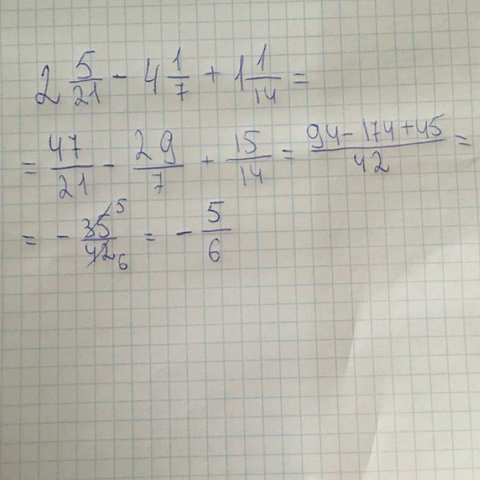 2 5/21 - 4 1/7 + 1 1/14 =
= 47/21 - 29/7 + 15/14 = (94-174+45)/42 =
= - 35/42 5 6 = - 5/6